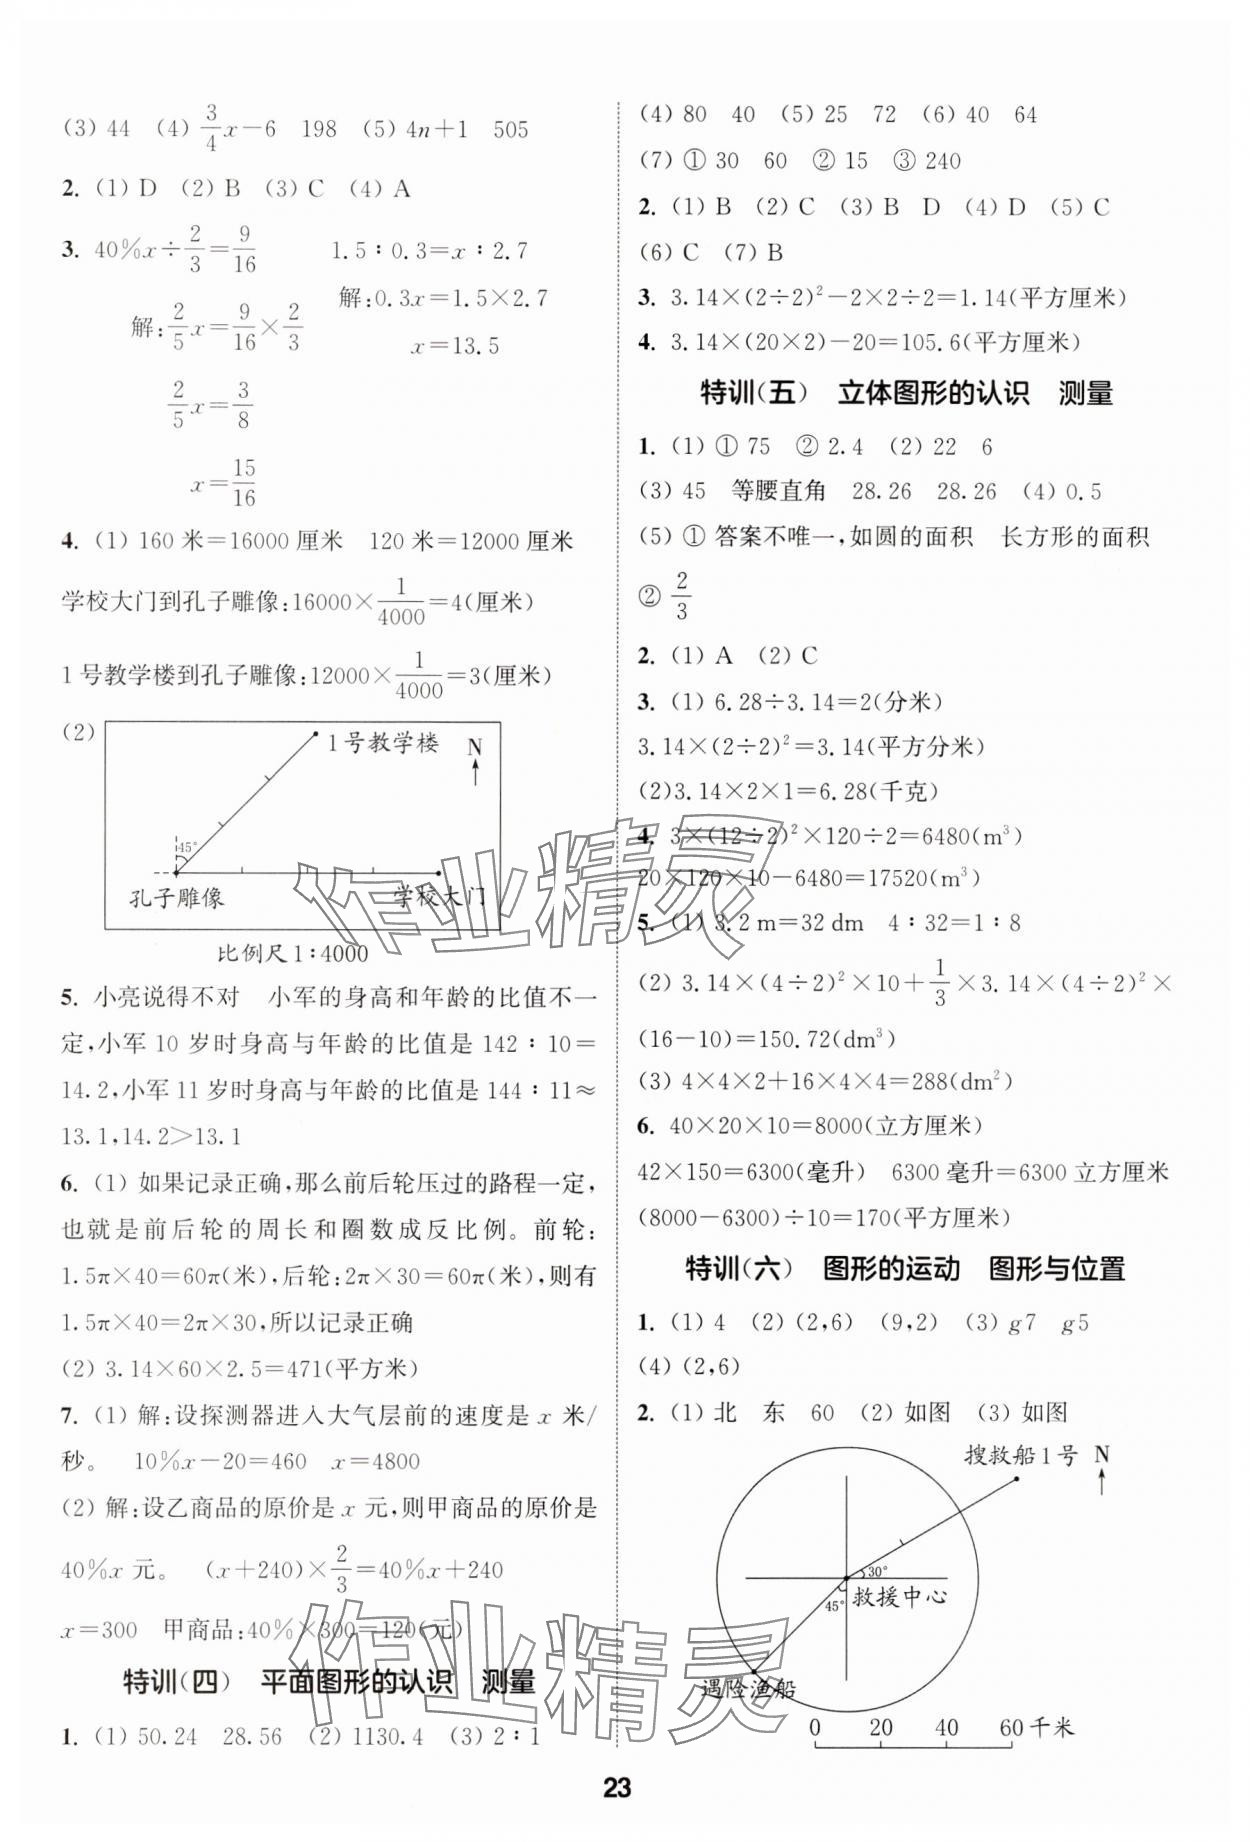 (3) 44　(4) 3/4 x－6　198　(5) 4n＋1　505
2. (1) D　(2) B　(3) C　(4) A
3. 40％x÷2/3＝9/16　　1.5∶0.3＝x∶2.7
解:2/5 x＝9/16×2/3　　解:0.3x＝1.5×2.7
2/5 x＝3/8　　x＝13.5
x＝15/16
4. (1) 160 米＝16000 厘米　120 米＝12000 厘米
学校大门到孔子雕像:16000×1/4000＝4(厘米)
1 号教学楼到孔子雕像:12000×1/4000＝3(厘米)
(2)
1号教学楼　N
45°
孔子雕像　学校大门
比例尺 1∶4000
5. 小亮说得不对　小军的身高和年龄的比值不一
定,小军 10 岁时身高与年龄的比值是 142∶10＝
14.2,小军 11 岁时身高与年龄的比值是 144∶11≈
13.1,14.2＞13.1
6. (1) 如果记录正确,那么前后轮压过的路程一定,
也就是前后轮的周长和圈数成反比例。前轮:
1.5π×40＝60π(米),后轮:2π×30＝60π(米),则有
1.5π×40＝2π×30,所以记录正确
(2) 3.14×60×2.5＝471(平方米)
7. (1) 解:设探测器进入大气层前的速度是 x 米/
秒。　10％x－20＝460　x＝4800
(2) 解:设乙商品的原价是 x 元,则甲商品的原价是
40％x 元。　(x＋240)×2/3＝40％x＋240
x＝300　甲商品:40％×300＝120(元)
特训(四)　平面图形的认识　测量
1. (1) 50.24　28.56　(2) 1130.4　(3) 2∶1
(4) 80　40　(5) 25　72　(6) 40　64
(7) ① 30　60　② 15　③ 240
2. (1) B　(2) C　(3) B　D　(4) D　(5) C
(6) C　(7) B
3. 3.14×(2÷2)²－2×2÷2＝1.14(平方厘米)
4. 3.14×(20×2)－20＝105.6(平方厘米)
特训(五)　立体图形的认识　测量
1. (1) ① 75　② 2.4　(2) 22　6
(3) 45　等腰直角　28.26　28.26　(4) 0.5
(5) ① 答案不唯一,如圆的面积　长方形的面积
② 2/3
2. (1) A　(2) C
3. (1) 6.28÷3.14＝2(分米)
3.14×(2÷2)²＝3.14(平方分米)
(2)3.14×2×1＝6.28(千克)
4. 3×(12÷2)²×120÷2＝6480(m³)
20×120×10－6480＝17520(m³)
5. (1) 3.2 m＝32 dm　4∶32＝1∶8
(2) 3.14×(4÷2)²×10＋1/3×3.14×(4÷2)²×
(16－10)＝150.72(dm³)
(3) 4×4×2＋16×4×4＝288(dm²)
6. 40×20×10＝8000(立方厘米)
42×150＝6300(毫升)　6300 毫升＝6300 立方厘米
(8000－6300)÷10＝170(平方厘米)
特训(六)　图形的运动　图形与位置
1. (1) 4　(2) (2,6)　(9,2)　(3) g7　g5
(4) (2,6)
2. (1) 北　东　60　(2) 如图　(3) 如图
搜救船1号　N
30°
45°　救援中心
遇险渔船
0　20　40　60千米
23
作业精灵
作业精灵